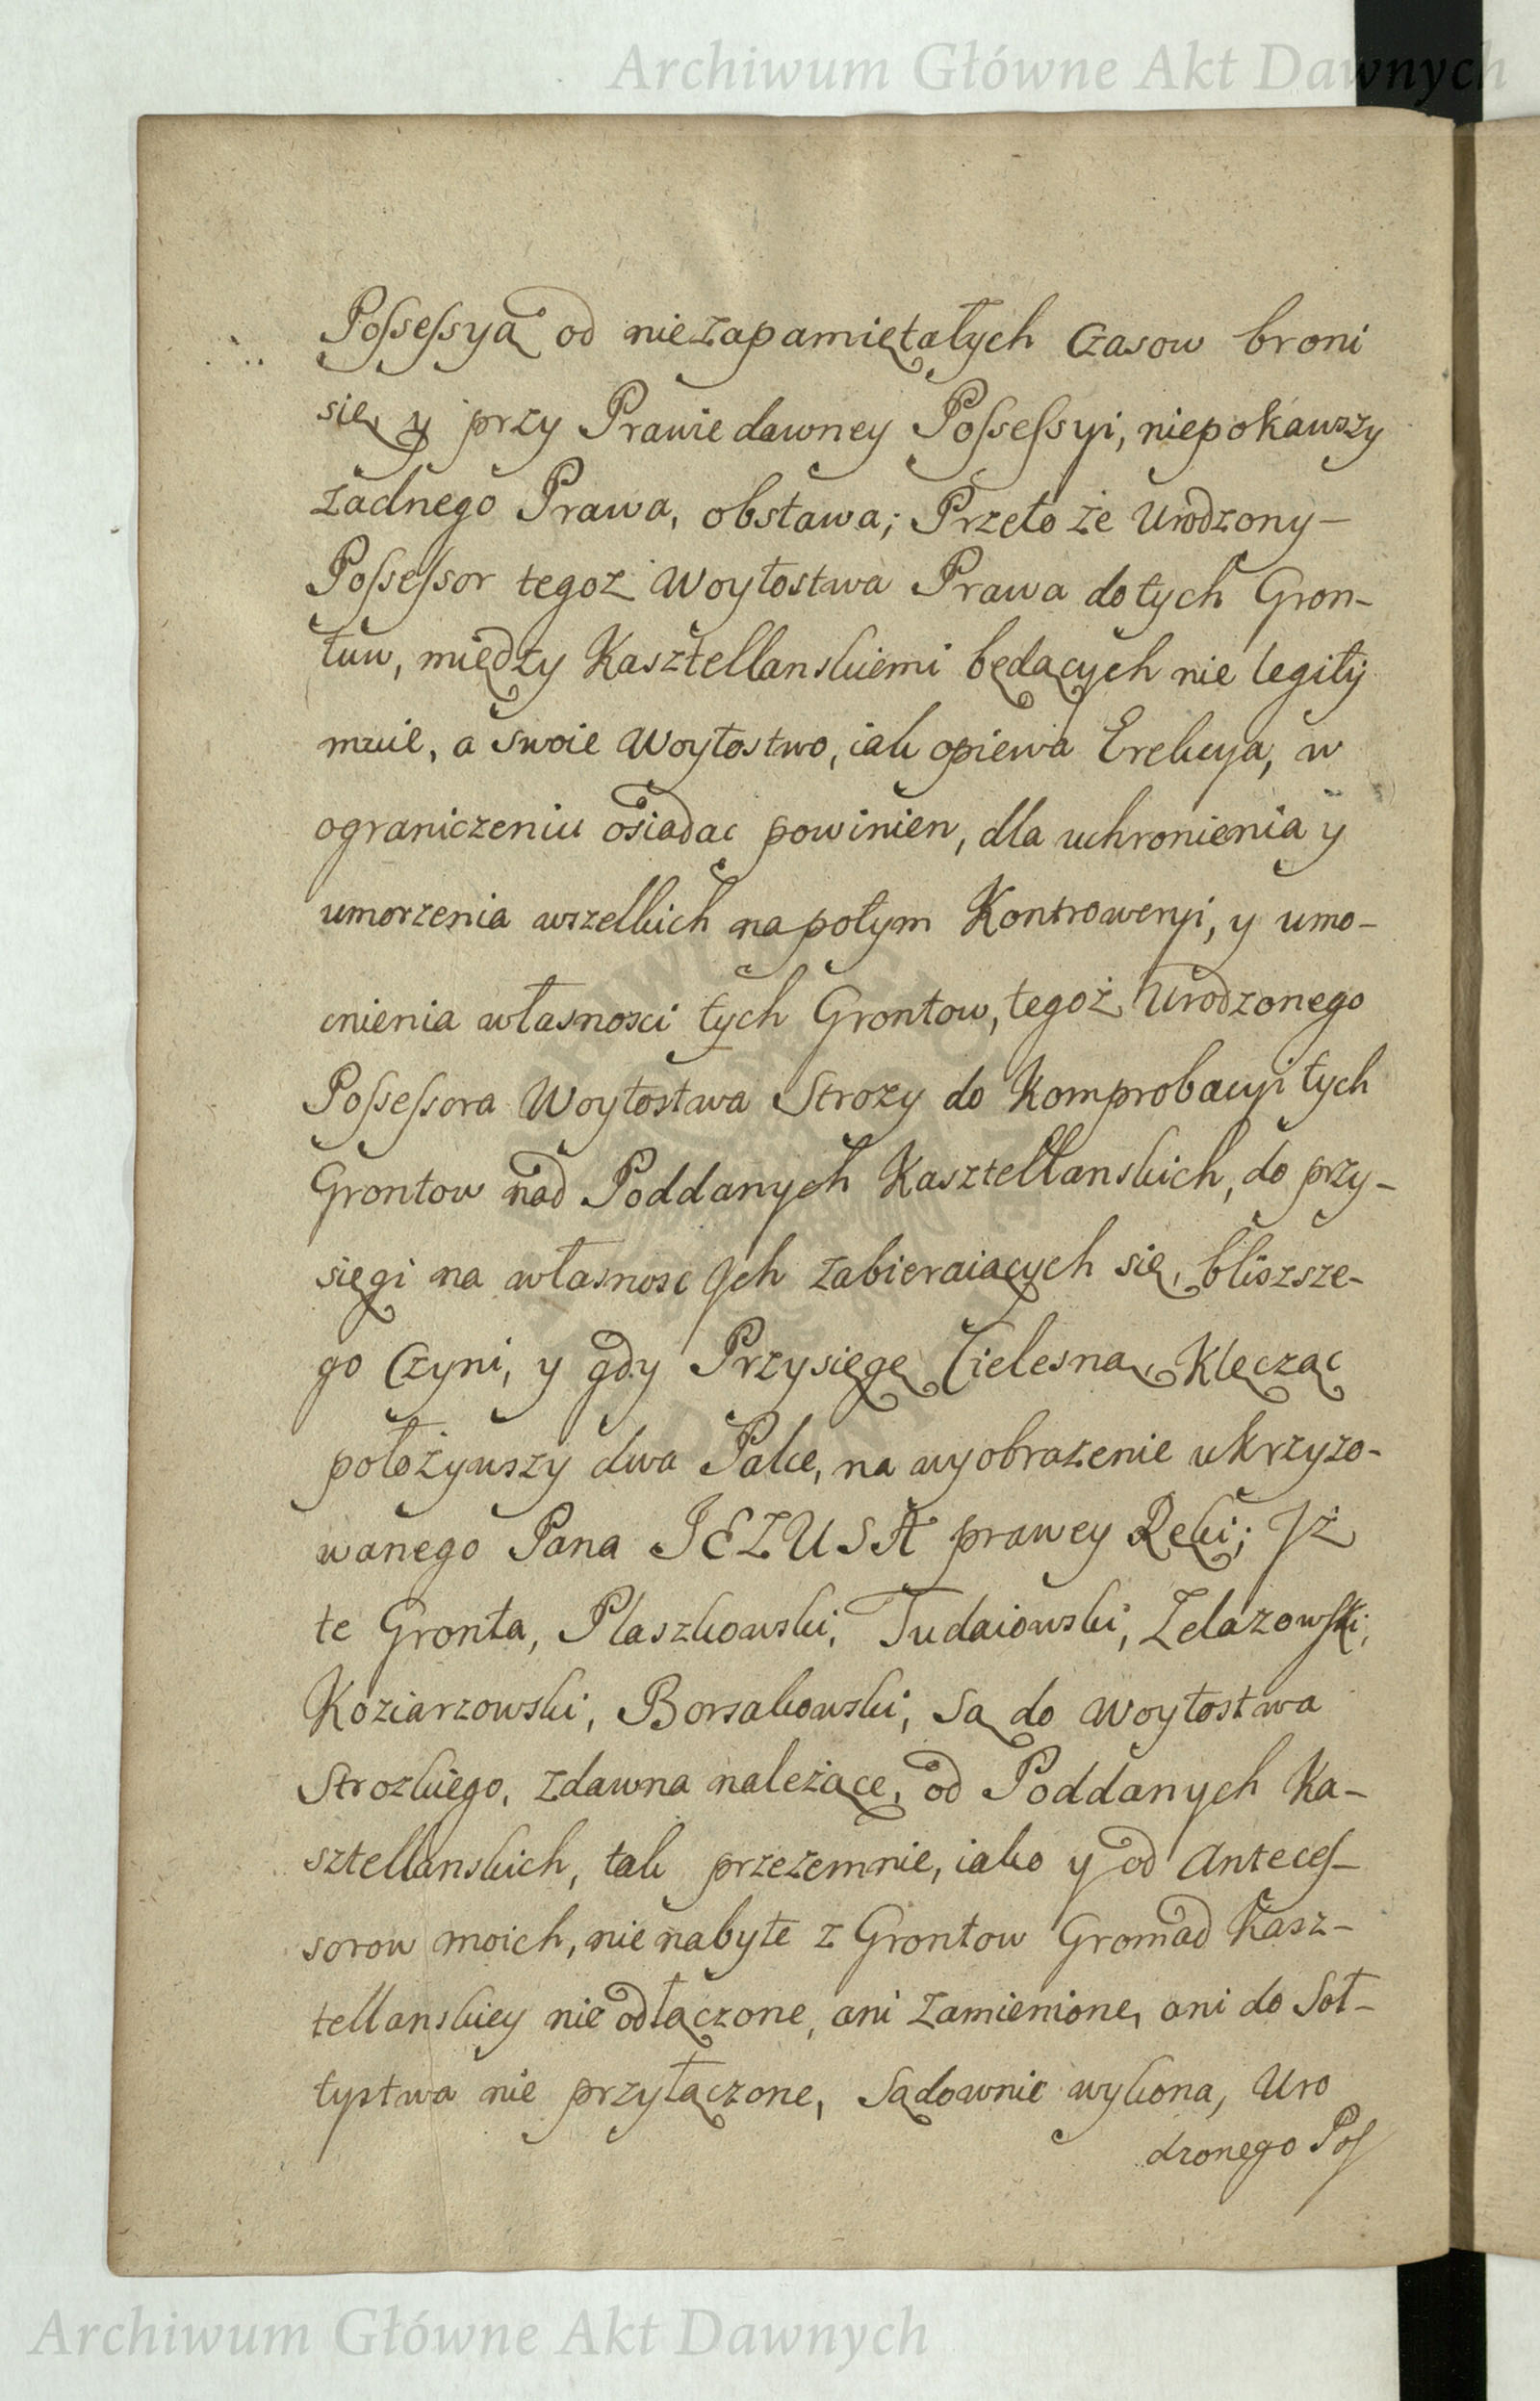 Archiwum Główne Akt Dawnych
Poſseſsyą od niezapamiętałych Czasow broni
się, y przy Prawie dawney Poſseſsyi, niepokawszy
żadnego Prawa, obstawa; Przeto że Urodzony–
Poſseſsor tegoż Woytostwa Prawa do tych Gron–
tuw, między Kasztellanskiemi będących nie legity
muie, a swoie Woytostwo, iak opiewa Erekcya, w
ograniczeniu osiadac powinien, dla uchronienia y
umorzenia wszelkich napotym Kontrowersyi, y umo–
cnienia własnosci tych Grontow, tegoż Urodzonego
Poſseſsora Woytostwa Strozy do Komprobacyi tych
Grontow nad Poddanych Kasztellanskich, do przy–
sięgi na własnosc Jch zabieraiących się, bliszsze–
go Czyni, y gdy Przysięgę Cielesną, Klęcząc
położywszy dwa Palce, na wyobrazenie ukrzyzo–
wanego Pana JEZUSA prawey Ręki; Jż
te Gronta, Plaszkowski, Tudaiowski, Zelazowſki,
Koziarzowski, Borsakowski, Są do Woytostwa
Strozkiego, zdawna należące, od Poddanych Ka–
sztellanskich, tak przezemnie, iako y od Anteceſ–
sorow moich, nie nabyte z Grontow Gromad Kasz–
tellanskiey nie odłączone, ani zamienione, ani do Soł–
tystwa nie przyłączone, Sądownie wykona, Uro
dzonego Poſ
Archiwum Główne Akt Dawnych